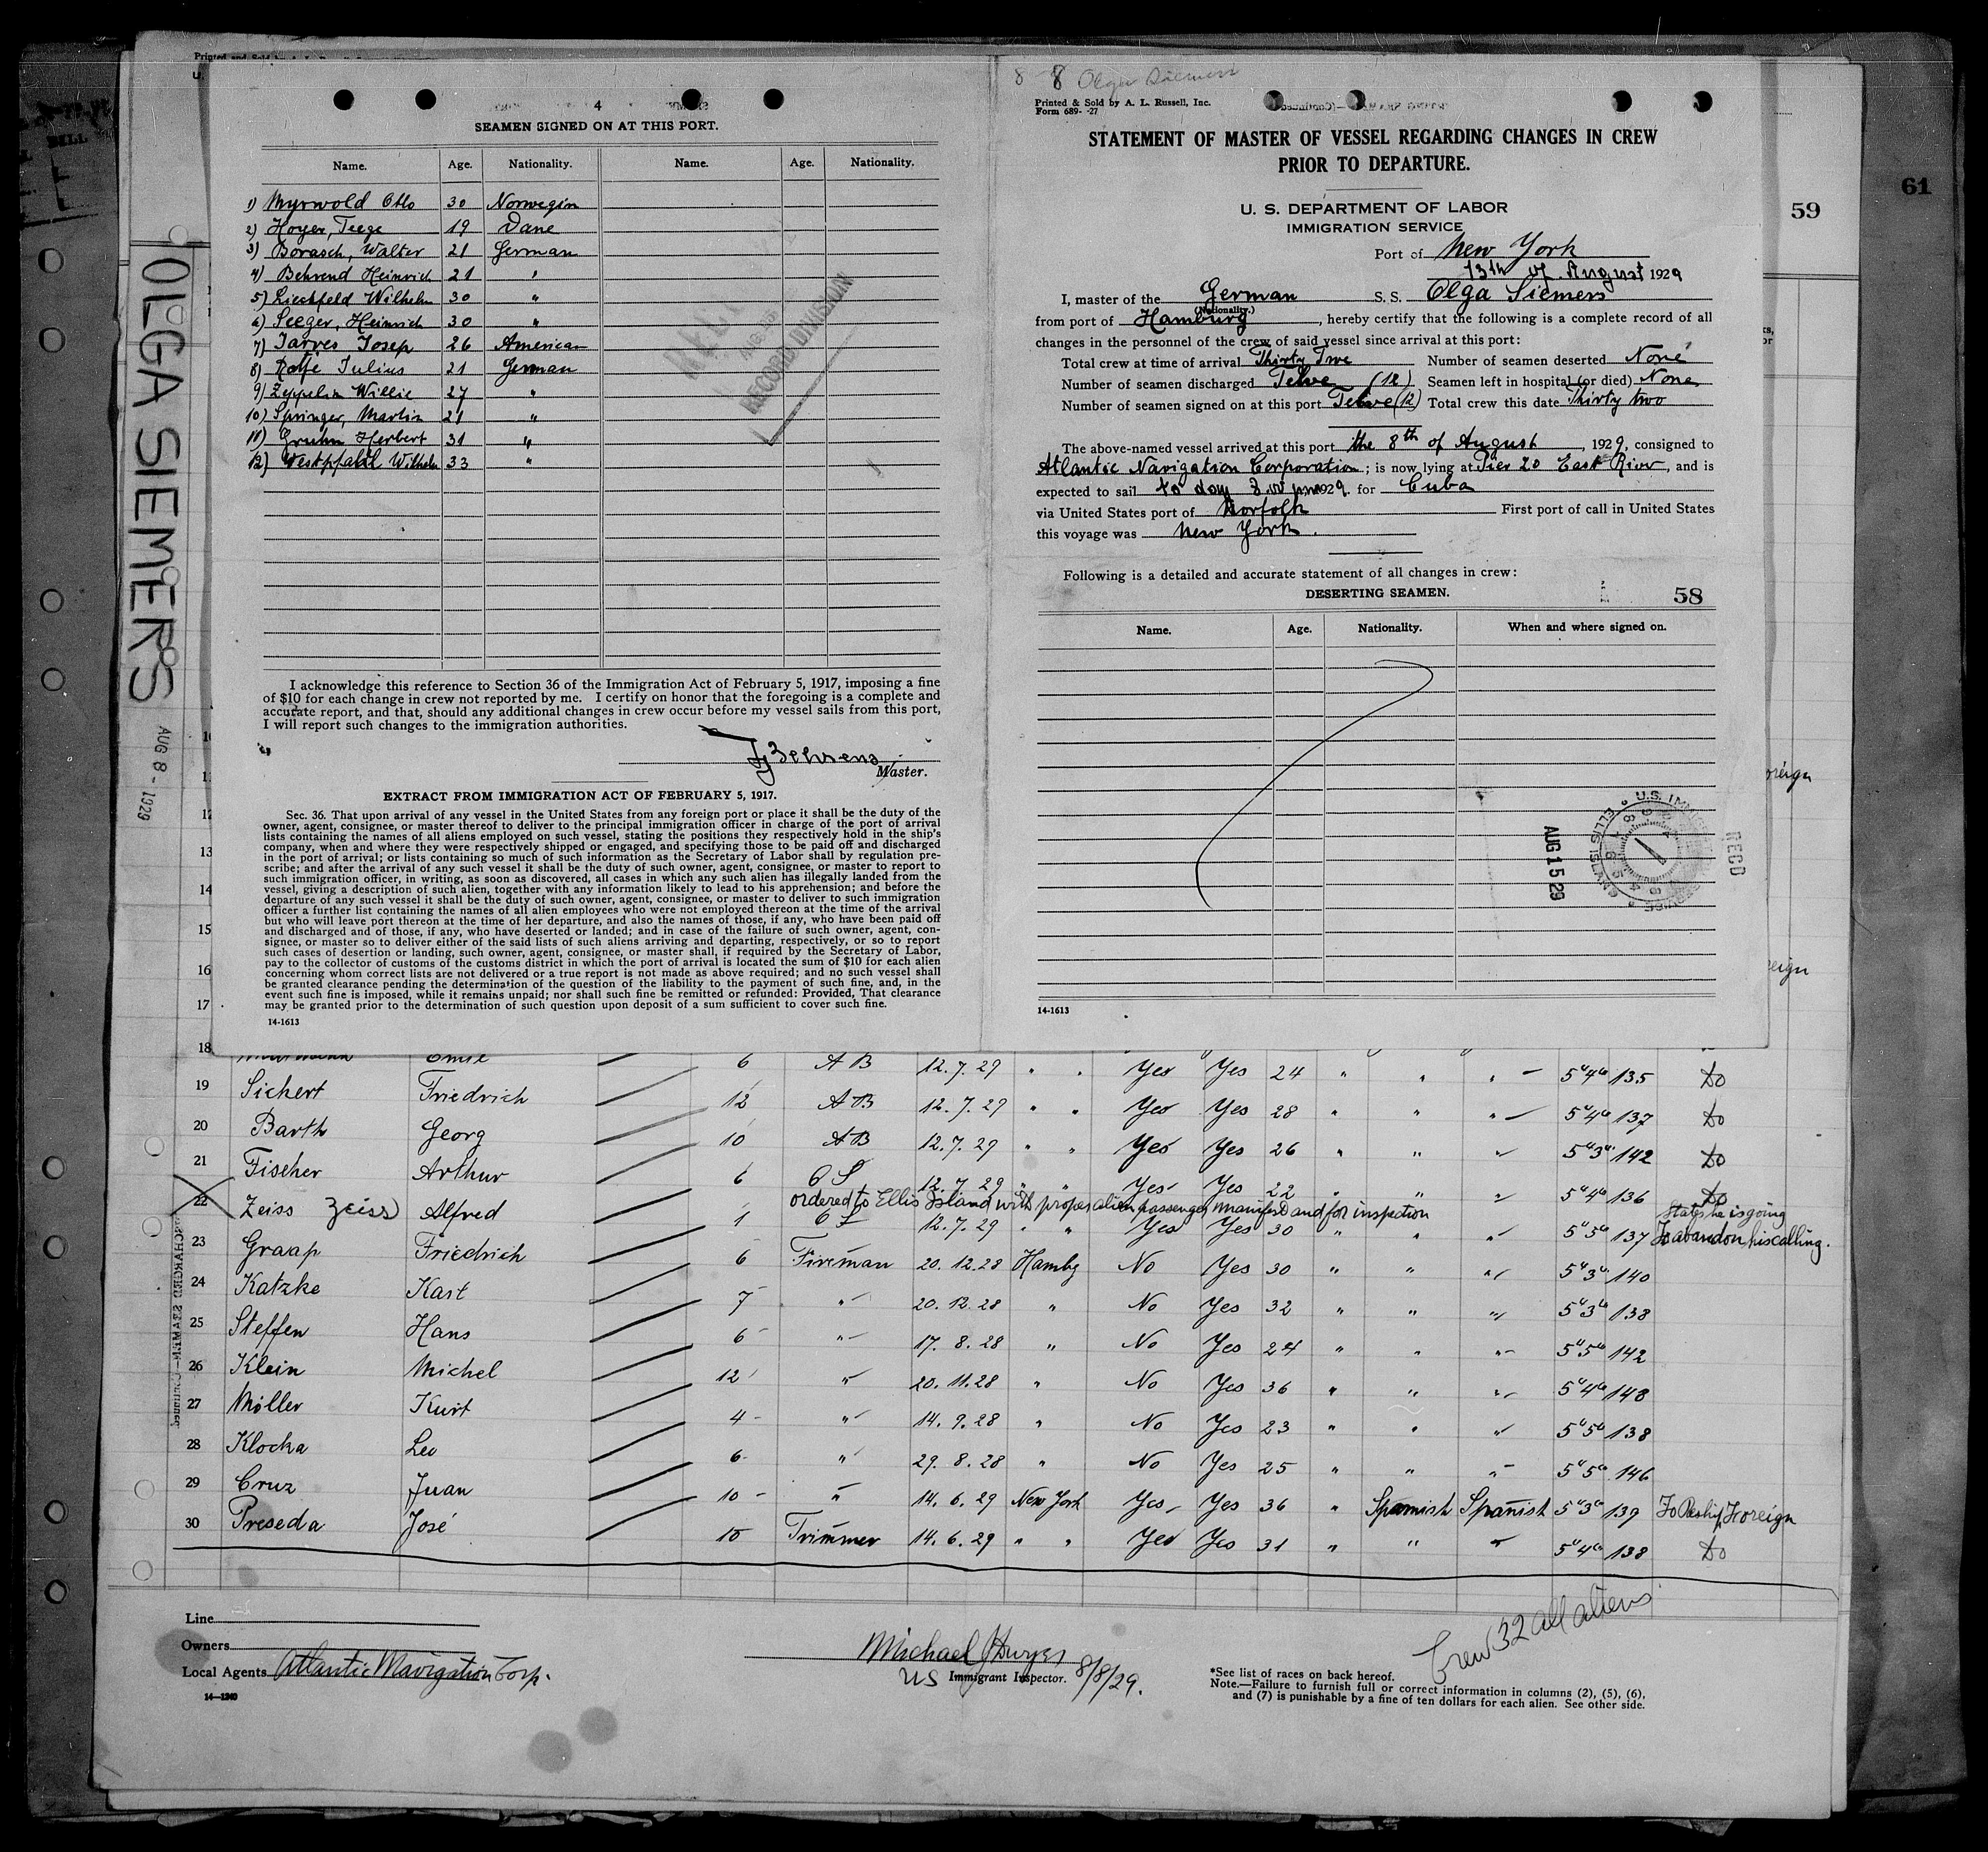 61
59
OLGA SIEMERS
AUG 8 - 1929
4
SEAMEN SIGNED ON AT THIS PORT.
Name. Age. Nationality. Name. Age. Nationality.
1) Myrwold Otto 30 Norwegin
2) Hoyer, Teege 19 Dane
3) Borasch, Walter 21 German
4) Behrend Heinrich 21 "
5) Liechfeld Wilhelm 30 "
6) Seeger, Heinrich 30 "
7) Jarves Josep 26 American
8) Rolfe Julius 21 German
9) Zeppelin Willie 27 "
10) Springer, Martin 21 "
11) Gruhn Herbert 31 "
12) Westpfahl Wilhelm 33 "
RECORD DIVISION
I acknowledge this reference to Section 36 of the Immigration Act of February 5, 1917, imposing a fine
of $10 for each change in crew not reported by me. I certify on honor that the foregoing is a complete and
accurate report, and that, should any additional changes in crew occur before my vessel sails from this port,
I will report such changes to the immigration authorities.
Behrens
Master.
EXTRACT FROM IMMIGRATION ACT OF FEBRUARY 5, 1917.
Sec. 36. That upon arrival of any vessel in the United States from any foreign port or place it shall be the duty of the
owner, agent, consignee, or master thereof to deliver to the principal immigration officer in charge of the port of arrival
lists containing the names of all aliens employed on such vessel, stating the positions they respectively hold in the ship's
company, when and where they were respectively shipped or engaged, and specifying those to be paid off and discharged
in the port of arrival; or lists containing so much of such information as the Secretary of Labor shall by regulation pre-
scribe; and after the arrival of any such vessel it shall be the duty of such owner, agent, consignee, or master to report to
such immigration officer, in writing, as soon as discovered, all cases in which any such alien has illegally landed from the
vessel, giving a description of such alien, together with any information likely to lead to his apprehension; and before the
departure of any such vessel it shall be the duty of such owner, agent, consignee, or master to deliver to such immigration
officer a further list containing the names of all alien employees who were not employed thereon at the time of the arrival
but who will leave port thereon at the time of her departure, and also the names of those, if any, who have been paid off
and discharged and of those, if any, who have deserted or landed; and in case of the failure of such owner, agent, con-
signee, or master so to deliver either of the said lists of such aliens arriving and departing, respectively, or so to report
such cases of desertion or landing, such owner, agent, consignee, or master shall, if required by the Secretary of Labor,
pay to the collector of customs of the customs district in which the port of arrival is located the sum of $10 for each alien
concerning whom correct lists are not delivered or a true report is not made as above required; and no such vessel shall
be granted clearance pending the determination of the question of the liability to the payment of such fine, and, in the
event such fine is imposed, while it remains unpaid; nor shall such fine be remitted or refunded: Provided, That clearance
may be granted prior to the determination of such question upon deposit of a sum sufficient to cover such fine.
14-1613
8 8 Olga Siemers
Printed & Sold by A. L. Russell, Inc.
Form 689- -27
STATEMENT OF MASTER OF VESSEL REGARDING CHANGES IN CREW
PRIOR TO DEPARTURE.
U. S. DEPARTMENT OF LABOR
IMMIGRATION SERVICE
Port of New York
13th of August 1929
I, master of the German S. S. Olga Siemers
(Nationality.)
from port of Hamburg, hereby certify that the following is a complete record of all
changes in the personnel of the crew of said vessel since arrival at this port:
Total crew at time of arrival Thirty Twe Number of seamen deserted None
Number of seamen discharged Telve (12) Seamen left in hospital (or died) None
Number of seamen signed on at this port Telve (12) Total crew this date Thirty two
The above-named vessel arrived at this port the 8th of August, 1929, consigned to
Atlantic Navigation Corporation; is now lying at Pier 20 East River, and is
expected to sail to day 3.00 pm 1929. for Cuba
via United States port of Norfolk First port of call in United States
this voyage was New York.
Following is a detailed and accurate statement of all changes in crew:
DESERTING SEAMEN.
58
Name. Age. Nationality. When and where signed on.
AUG 15 29
RECD
14-1613
13
14
15
16
17
18 Emil 6 AB 12.7.29 " " Yes Yes 24 " " " 5"4" 135 Do
19 Sichert Friedrich 12 AB 12.7.29 " " Yes Yes 28 " " " 5"4" 137 Do
20 Barth Georg 10 AB 12.7.29 " " Yes Yes 26 " " " 5"3" 142 Do
21 Fischer Arthur 6 OS 12.7.29 " " Yes Yes 22 " " " 5"4" 136 Do
ordered to Ellis Island with proper alien passenger manifest and for inspection
22 Zeiss Zeiss Alfred 1 OS 12.7.29 " " Yes Yes 30 " " " 5"5" 137 States he is going to abandon his calling.
23 Graap Friedrich 6 Fireman 20.12.28 Hambg No Yes 30 " " " 5"3" 140
24 Katzke Karl 7 " 20.12.28 " No Yes 32 " " " 5"3" 138
25 Steffen Hans 6 " 17.8.28 " No Yes 24 " " " 5"5" 142
26 Klein Michel 12 " 20.11.28 " No Yes 36 " " " 5"4" 148
27 Møller Kurt 4 " 14.9.28 " No Yes 23 " " " 5"5" 138
28 Klocka Leo 6 " 29.8.28 " No Yes 25 " " " 5"5" 146
29 Cruz Juan 10 " 14.6.29 New York Yes Yes 36 " Spanish Spanish 5"3" 139 To Reship Foreign
30 Preseda José 10 Trimmer 14.6.29 " " Yes Yes 31 " " " 5"4" 138 Do
Line
Owners
Local Agents Atlantic Navigation Corp.
14—1240
Michael Dwyer
US Immigrant Inspector. 8/8/29.
Crew 32 all aliens
*See list of races on back hereof.
Note.—Failure to furnish full or correct information in columns (2), (5), (6),
and (7) is punishable by a fine of ten dollars for each alien. See other side.